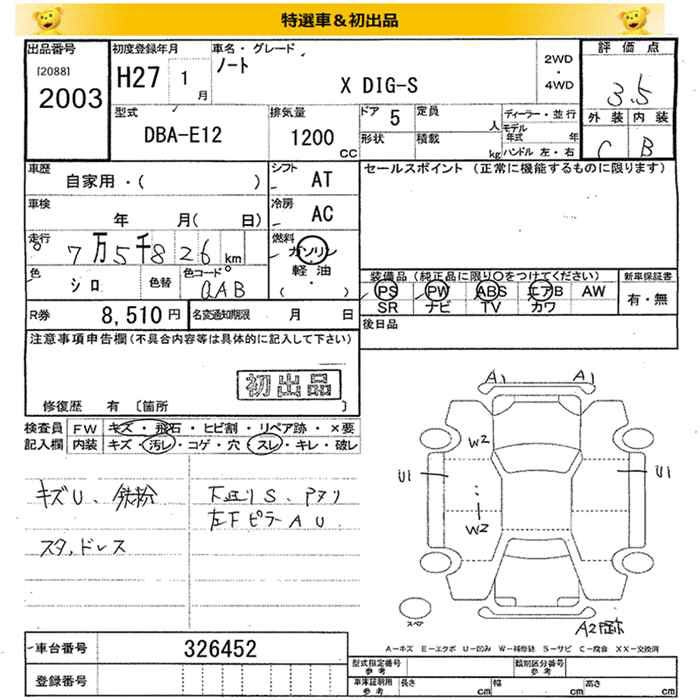 特選車＆初出品
出品番号 初度登録年月 車名・グレード 評価点
[2088] H27 1月 ノート 2WD・4WD 3.5
2003 X DIG-S
型式 排気量 ドア 5 定員 人 ディーラー・並行 外装 内装
DBA-E12 1200 CC 形状 積載 kg モデル年式 年 C B
ハンドル 左・右
車歴 シフト セールスポイント（正常に機能するものに限ります）
自家用・( ) AT
車検 冷房
年 月( 日) AC
走行 燃料
7万5千826km ガソリン
軽油
・( )
色 色替 色コード 装備品（純正品に限り○をつけてください） 新車保証書
シロ QAB PS PW ABS エアB AW 有・無
SR ナビ TV カワ
R券 8,510円 名変通知期限 月 日 後日品
注意事項申告欄(不具合内容等は具体的に記入して下さい)
初出品
修復歴 有 〔箇所 〕
検査員 FW キズ・飛石・ヒビ割・リペア跡・×要
記入欄 内装 キズ・汚レ・コゲ・穴・スレ・キレ・破レ
キズU、鉄粉 下廻りS、アオリ
左下ピラーAU
スタッドレス
A1 A1
W2
U1 U1
W2
スペア A2
A-キズ E-エクボ U-凹み W-補修跡 S-サビ C-腐食 XX-交換済
車台番号 326452 型式指定番号 参考 類別区分番号 参考
登録番号 車庫証明用 参考 長さ cm 幅 cm 高さ cm